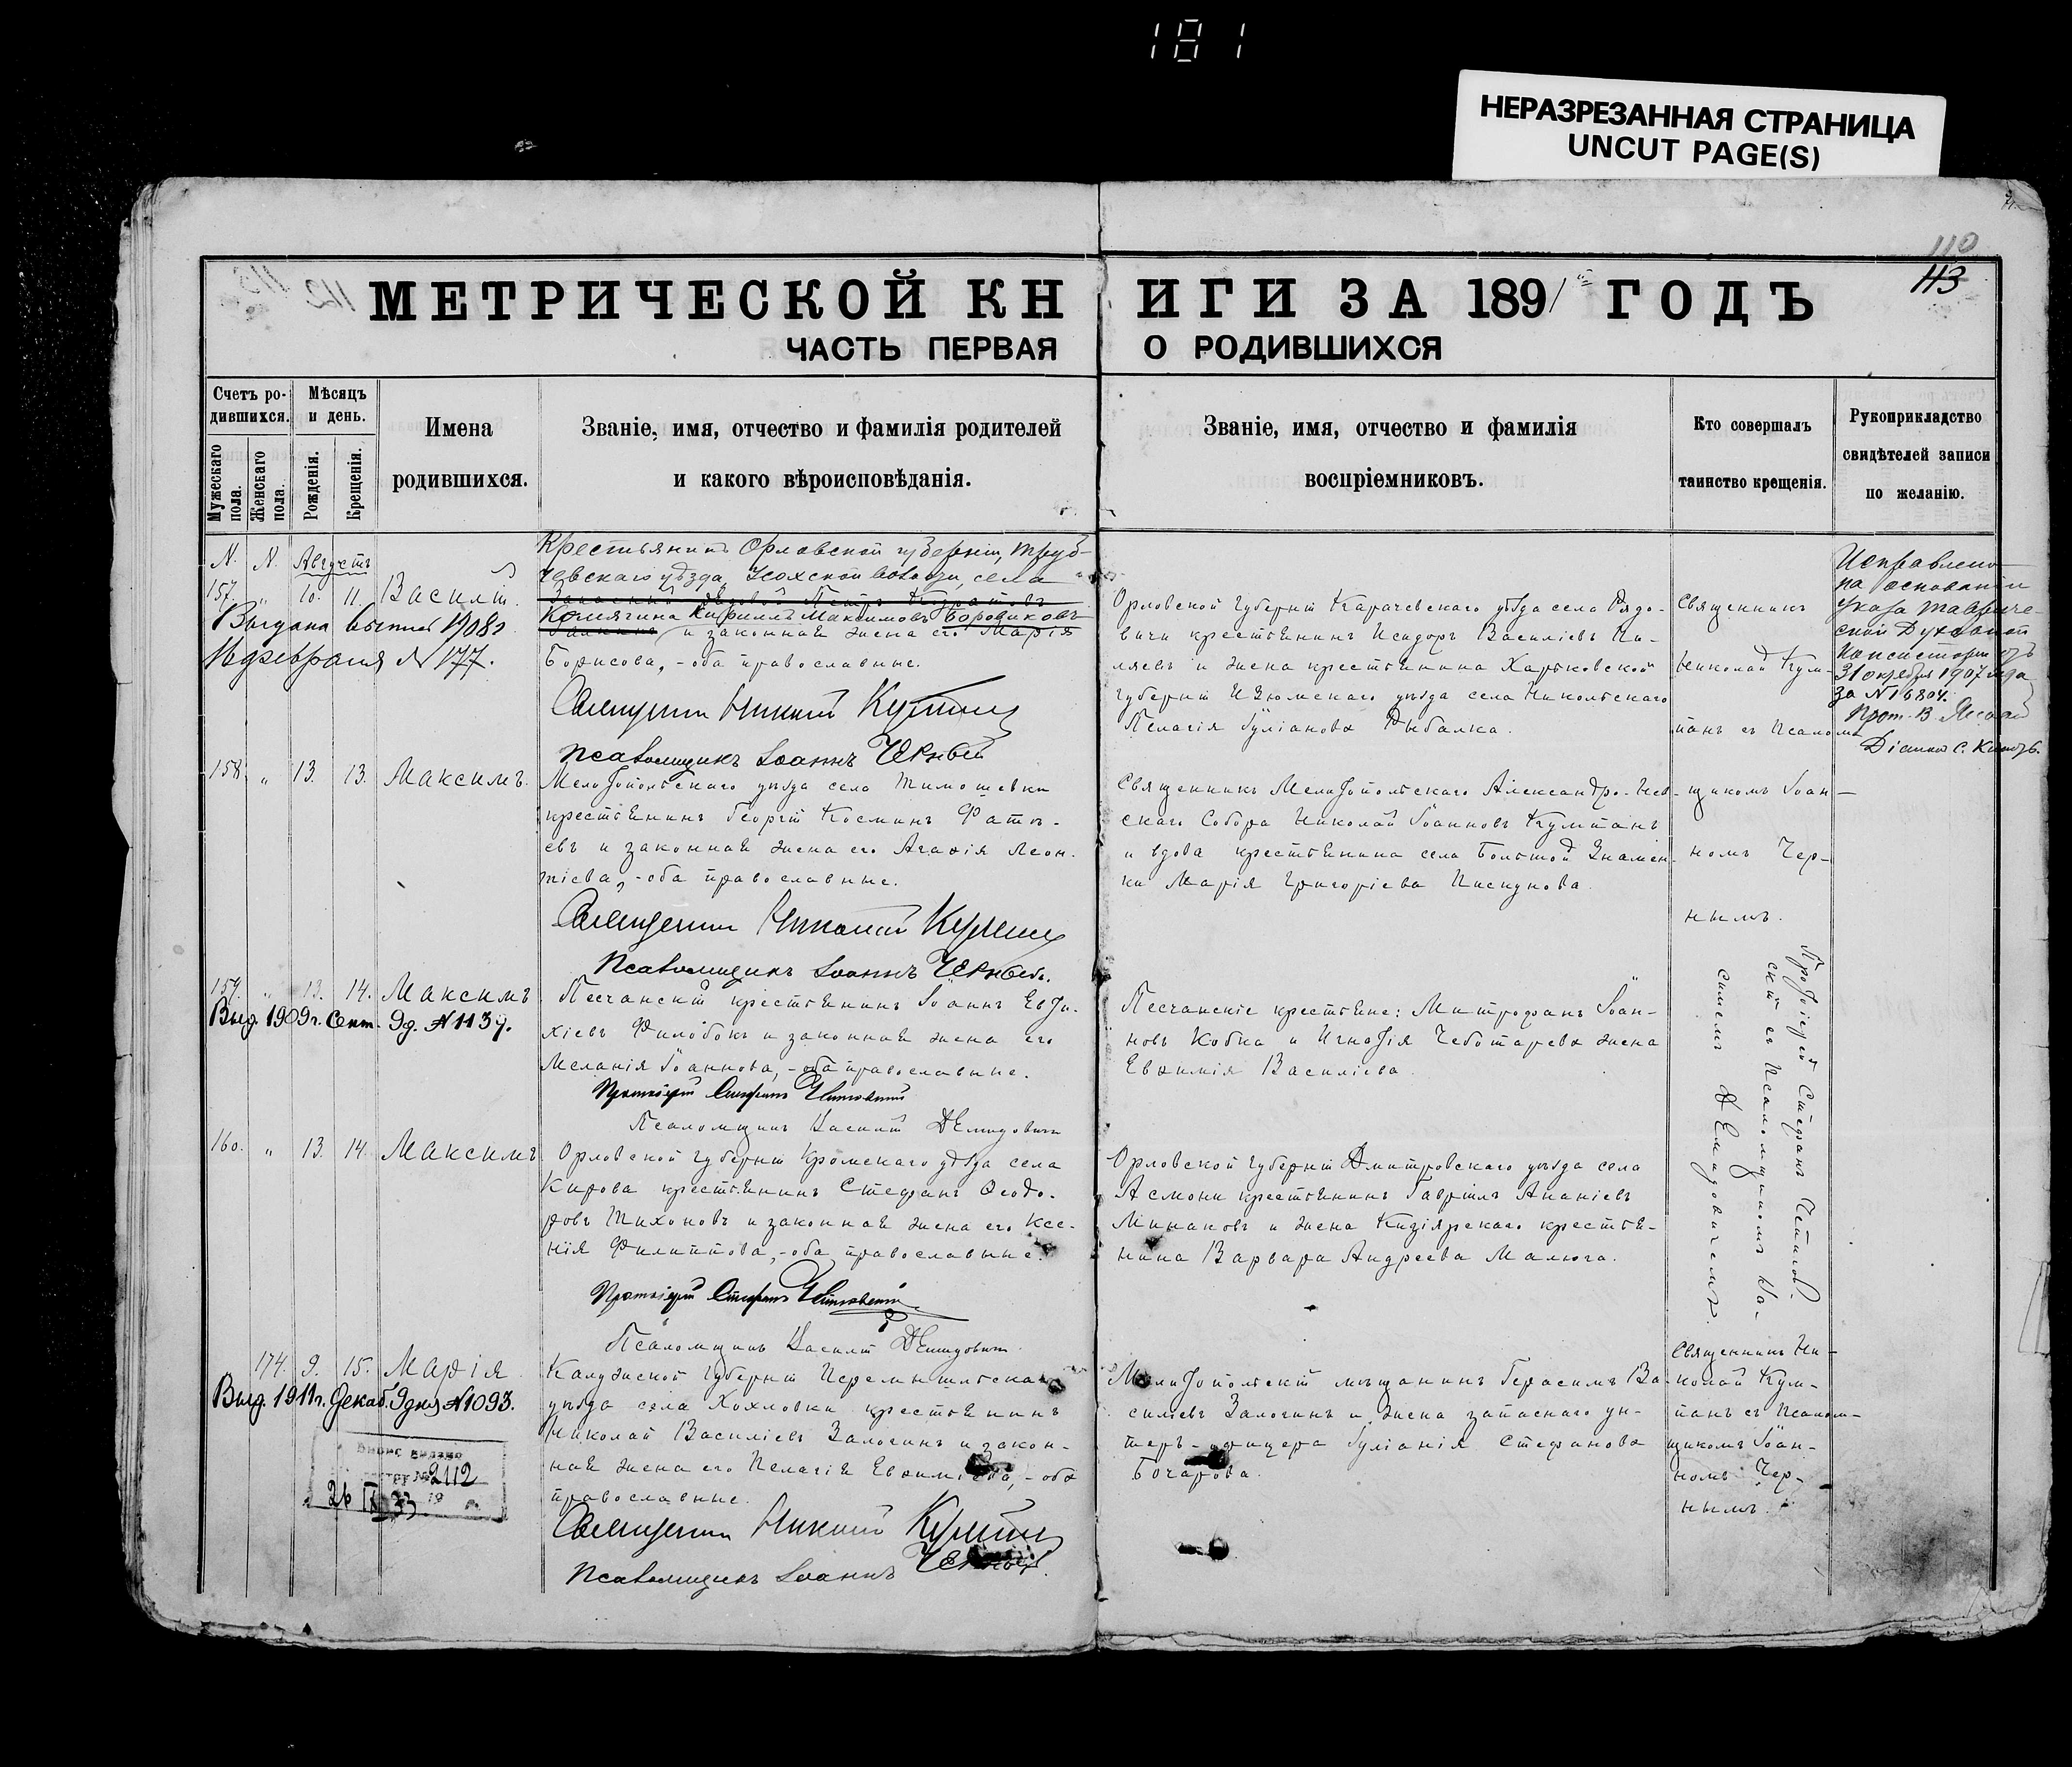 181
НЕРАЗРЕЗАННАЯ СТРАНИЦА
UNCUT PAGE(S)
110
113
МЕТРИЧЕСКОЙ КНИГИ ЗА 1891 ГОДЪ
ЧАСТЬ ПЕРВАЯ О РОДИВШИХСЯ
Счетъ ро-
дившихся.
Мѣсяцъ
и день.
Мужескаго пола.
Женскаго пола.
Рожденія.
Крещенія.
Имена
родившихся.
Званіе, имя, отчество и фамилія родителей
и какого вѣроисповѣданія.
Званіе, имя, отчество и фамилія
воспріемниковъ.
Кто совершалъ
таинство крещенія.
Рукоприкладство
свидѣтелей записи
по желанію.
N. N. Августъ
157. " 10. 11. Василій.
Выдана выпись 1908г
февраля N 177.
Крестьянинъ Орловской губерніи, Труб-
чевскаго уѣзда, Усохской волости, села
Кирилъ Максимовъ Боровиковъ
и законная жена его Марія
Борисова, - оба православные.
Священникъ Николай Кумпанъ
Псаломщикъ Іоаннъ Черный
Орловской губерніи Карачевскаго уѣзда села
крестьянинъ Исидоръ Василіевъ
и жена крестьянина Харьковской
губерніи Изюмскаго уѣзда села Никольскаго
Пелагія Іуліанова Рыбалка.
Священникъ
Николай Кум-
панъ съ Псалом-
щикомъ Іоан-
номъ Чер-
нымъ.
Исправлено
на основаніи
указа Тавриче-
ской Духовной
Консисторіи отъ
31 октября 1907 года
за N 16804.
Прот. В.
Діаконъ С.
158. " 13. 13. Максимъ.
Мелитопольскаго уѣзда села Тимошевки
крестьянинъ Георгій Косминъ
евъ и законная жена его Агафія Леон-
тіева, - оба православные.
Священникъ Николай Кумпанъ
Псаломщикъ Іоаннъ Черный.
Священникъ Мелитопольскаго Александро-Нев-
скаго Собора Николай Іоанновъ Кумпанъ
и вдова крестьянина села Большой Знамен-
ки Марія Григоріева Пискунова.
159. " 13. 14. Максимъ
Выд. 1909г. Сент. 9д. N 1139.
Песчанскій крестьянинъ Іоаннъ Евти-
хіевъ и законная жена его
Меланія Іоаннова, - оба православные.
Протоіерей Стефанъ
Псаломщикъ Василій Демидовичъ
Песчанскіе крестьяне: Митрофанъ Іоан-
новъ Кобка и Игнатія Чеботарева жена
Евфимія Василіева.
Протоіерей Стефанъ
скій съ Псаломщикомъ Ва-
силіемъ Демидовичемъ.
160. " 13. 14. Максимъ
Орловской губерніи Кромскаго уѣзда села
Кирова крестьянинъ Стефанъ Ѳеодо-
ровъ Тихоновъ и законная жена его Ксе-
нія Филиппова, - оба православные.
Протоіерей Стефанъ
Псаломщикъ Василій Демидовичъ.
Орловской губерніи Дмитровскаго уѣзда села
Асмони крестьянинъ Гавріилъ Ананіевъ
Минаковъ и жена Кизіярскаго крестья-
нина Варвара Андреева Малюга.
174. 9. 15. Марія
Выд. 1911г. Декаб. 9 дня N 1093.
2112
26 IX 33
Калужской губерніи Перемышльскаго
уѣзда села Хохловки крестьянинъ
Николай Василіевъ Залогинъ и закон-
ная жена его Пелагія Евфиміева, - оба
православные.
Священникъ Николай Кумпанъ
Псаломщикъ Іоаннъ Черный.
Мелитопольскій мѣщанинъ Герасимъ Ва-
силіевъ Залогинъ и жена запаснаго ун-
теръ-офицера Іуліанія Стефанова
Бочарова.
Священникъ Ни-
колай Кум-
панъ съ Псалом-
щикомъ Іоан-
номъ Чер-
нымъ.